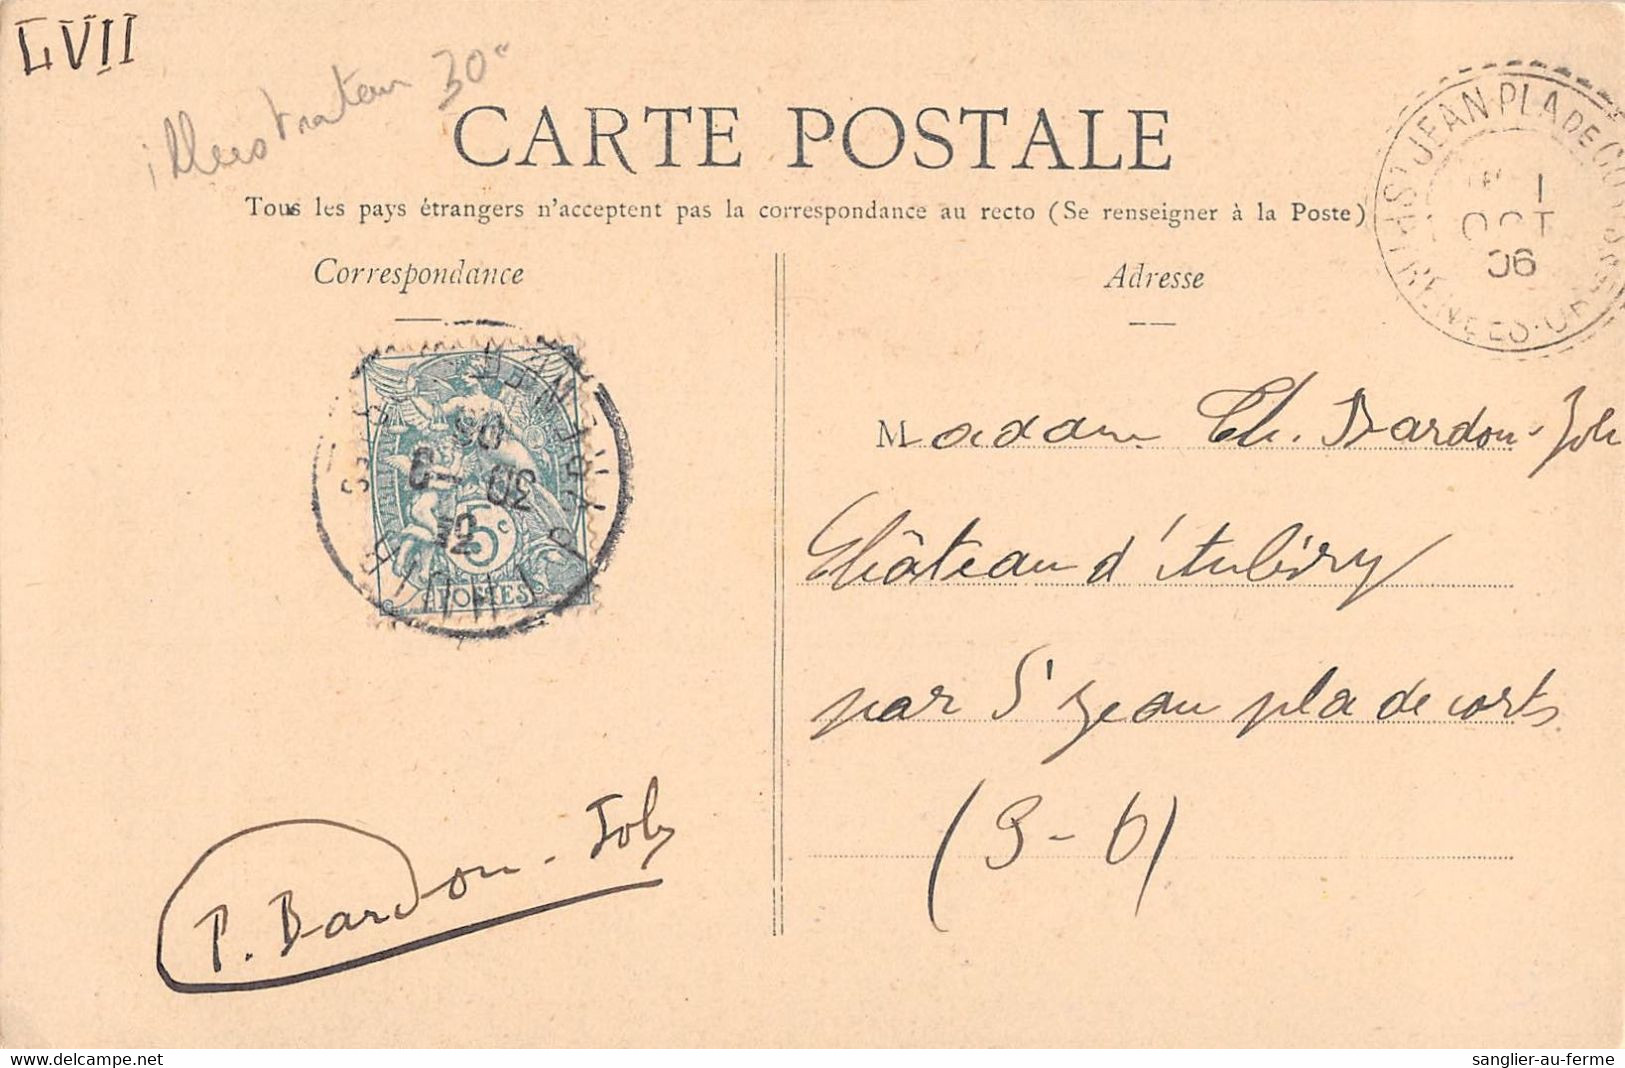 LVII
illustrateur 30"
CARTE POSTALE
Tous les pays étrangers n'acceptent pas la correspondance au recto (Se renseigner à la Poste)
Correspondance
Adresse
ST JEAN PLA DE CORTS
1
OCT
06
5c
POSTES
30 - 9
Madame Ch. Bardou-Job
Château d'Aubiry
par St Jean pla de corts
(P-O)
P. Bardou-Job
delcampe.net
sanglier-au-ferme